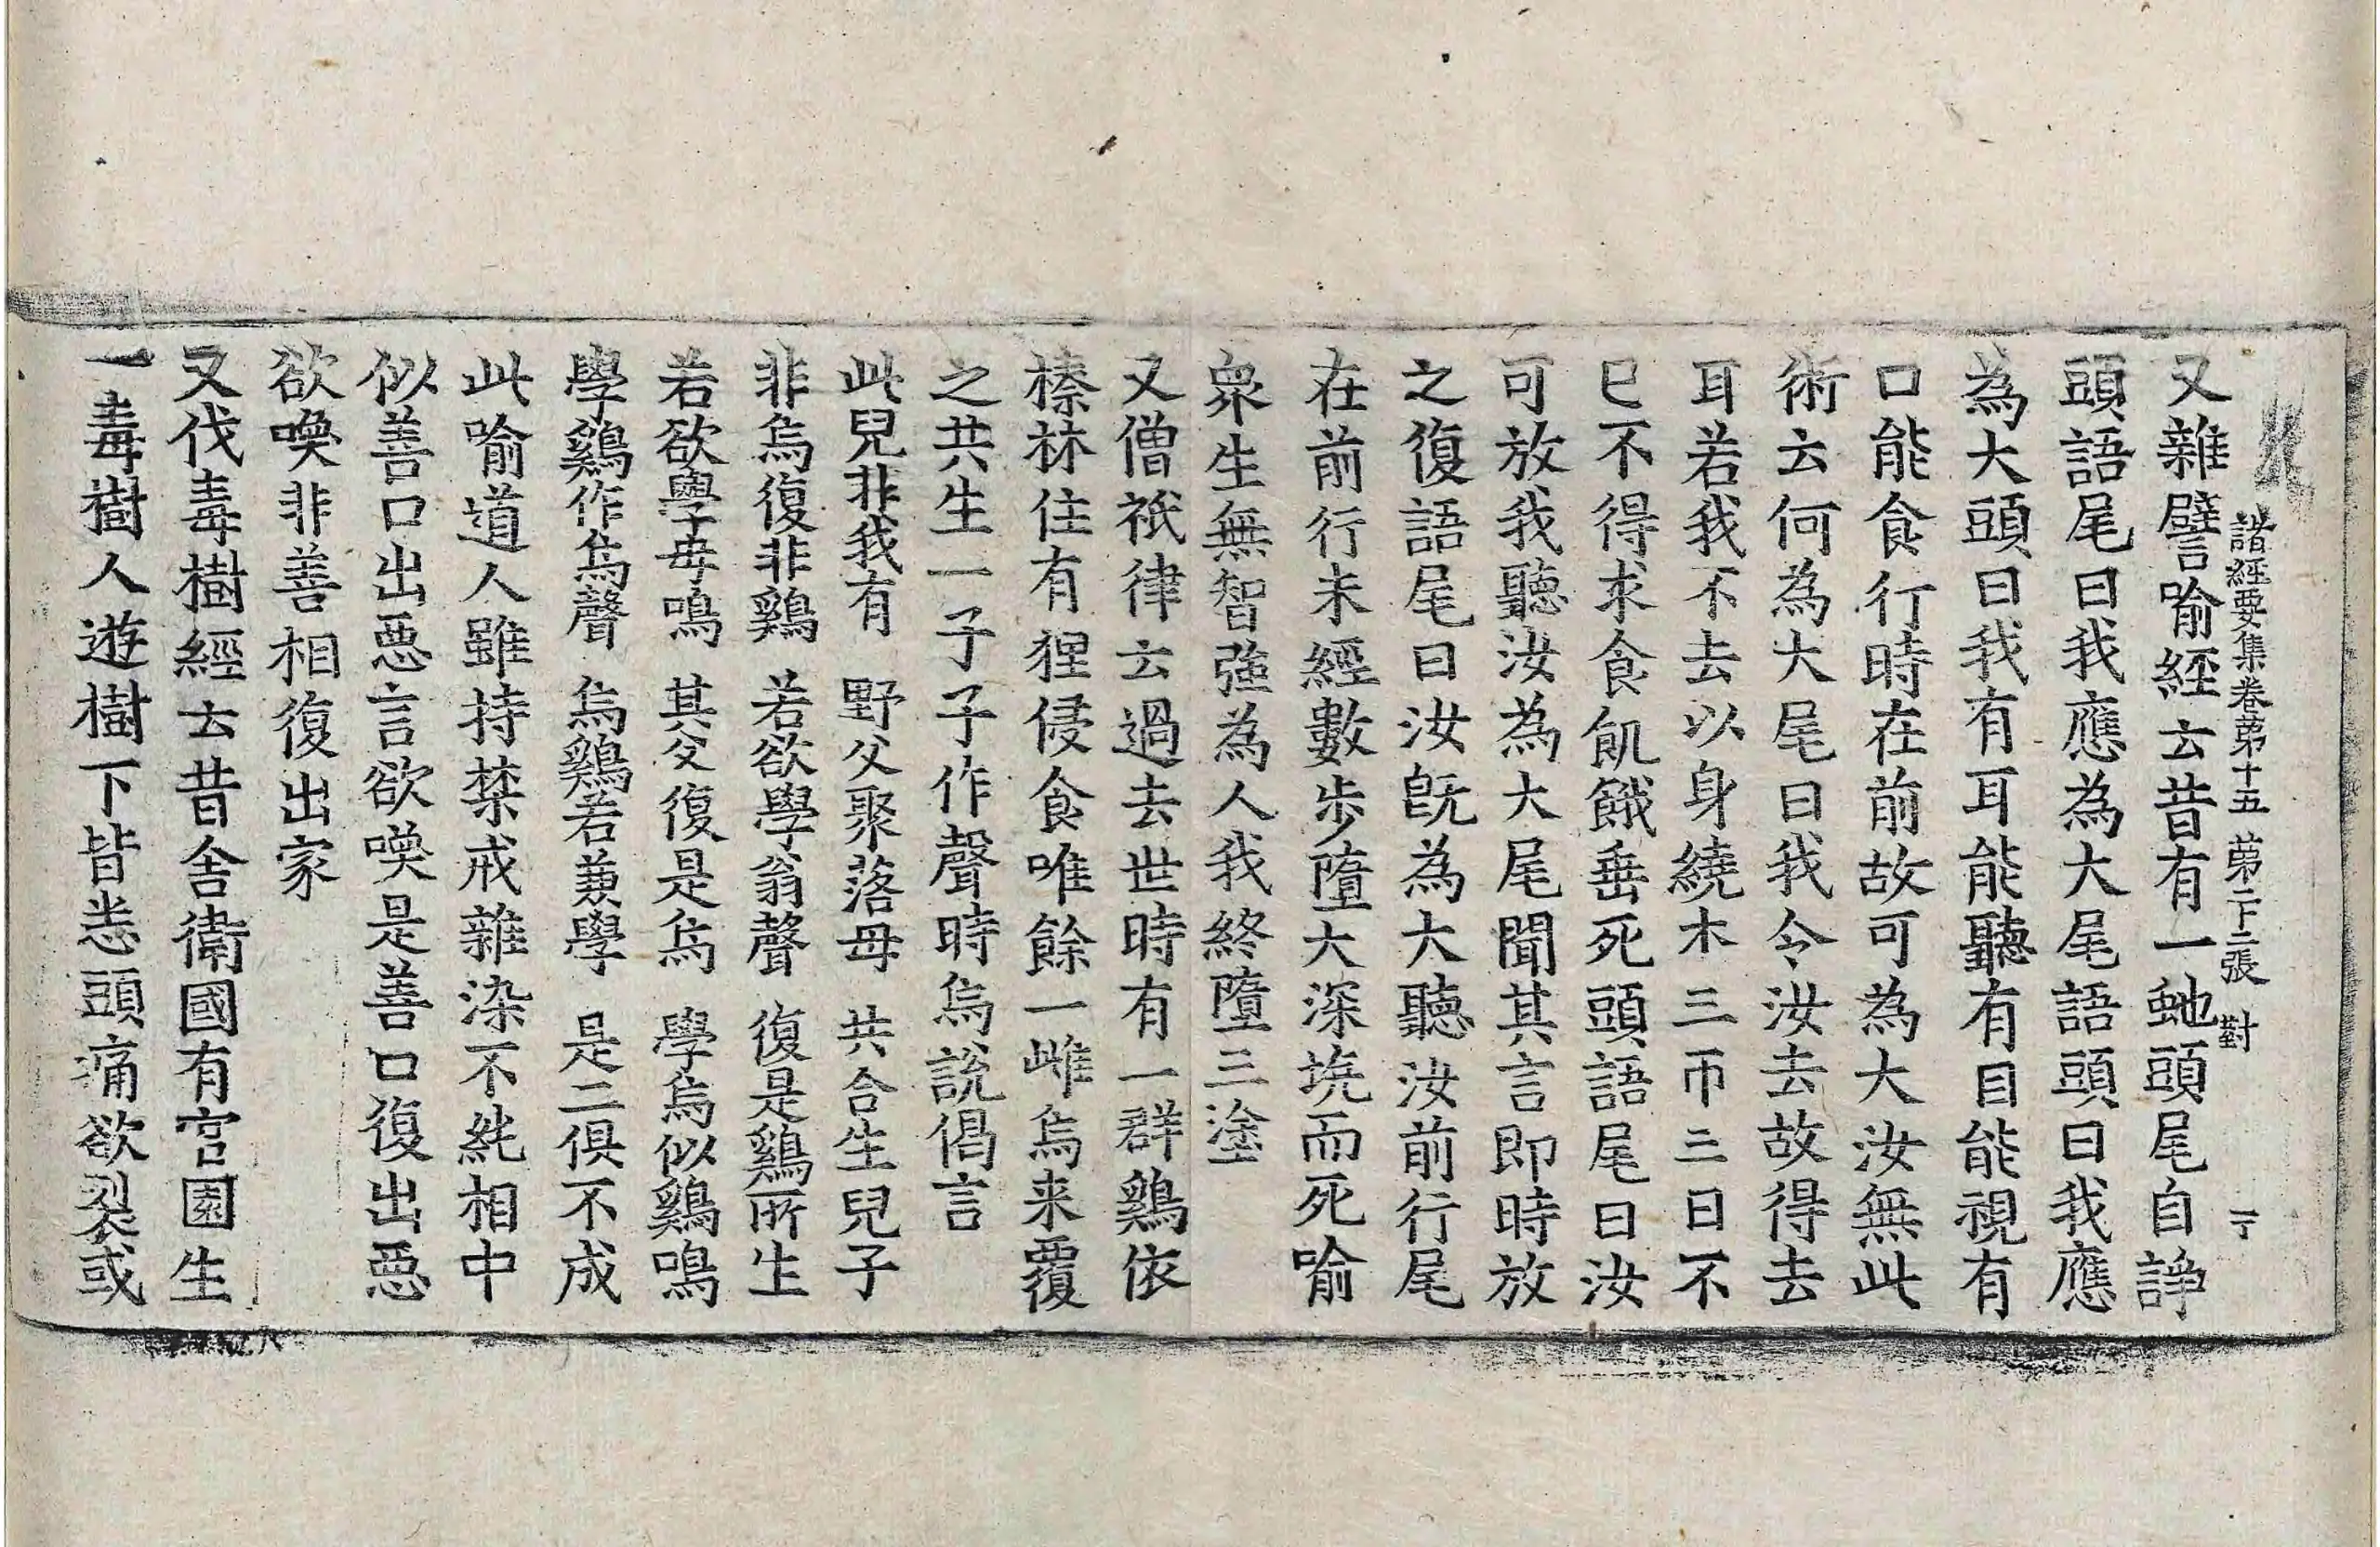 諸經要集卷苐十五 苐二下二張 對
又雜譬喻經云昔有一虵頭尾自諍
頭語尾曰我應為大尾語頭曰我應
為大頭曰我有耳能聽有目能視有
口能食行時在前故可為大汝無此
術云何為大尾曰我令汝去故得去
耳若我不去以身繞木三帀三日不
巳不得求食飢餓垂死頭語尾曰汝
可放我聽汝為大尾聞其言即時放
之復語尾曰汝旣為大聽汝前行尾
在前行未經數步墮大深坑而死喻
衆生無智強為人我終墮三塗
又僧祇律云過去世時有一群鷄依
榛林住有狸侵食唯餘一雌烏来覆
之共生一子子作聲時烏說偈言
此兒非我有 野父聚落母 共合生兒子
非烏復非鷄 若欲學翁聲 復是鷄所生
若欲學母鳴 其父復是烏 學烏似鷄鳴
學鷄作烏聲 烏鷄若兼學 是二俱不成
此喻道人雖持禁戒雜染不純相中
似善口出惡言欲喚是善口復出惡
欲喚非善相復出家
又伐毒樹經云昔舍衛國有官園生
一毒樹人遊樹下皆恙頭痛欲裂或